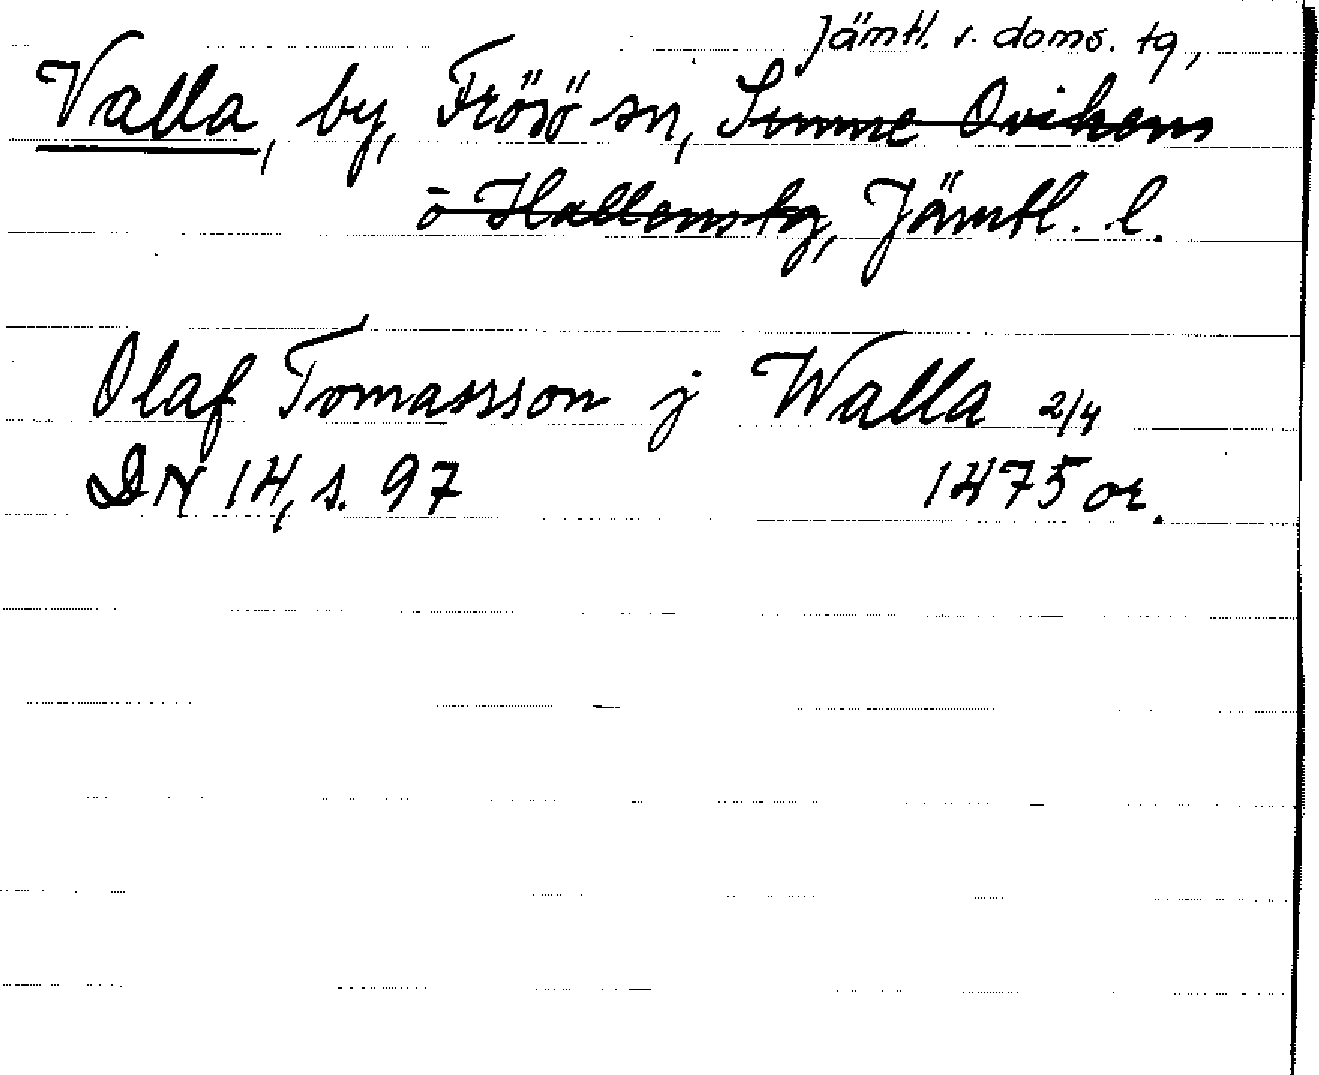 Jämtl. v. doms. tg,
Valla, by, Frösö sn, Sunne Ovikens
o Hallens tg, Jämtl. l.
Olaf Tomassson j Walla 2/4
DN 14, s. 97 1475 or.